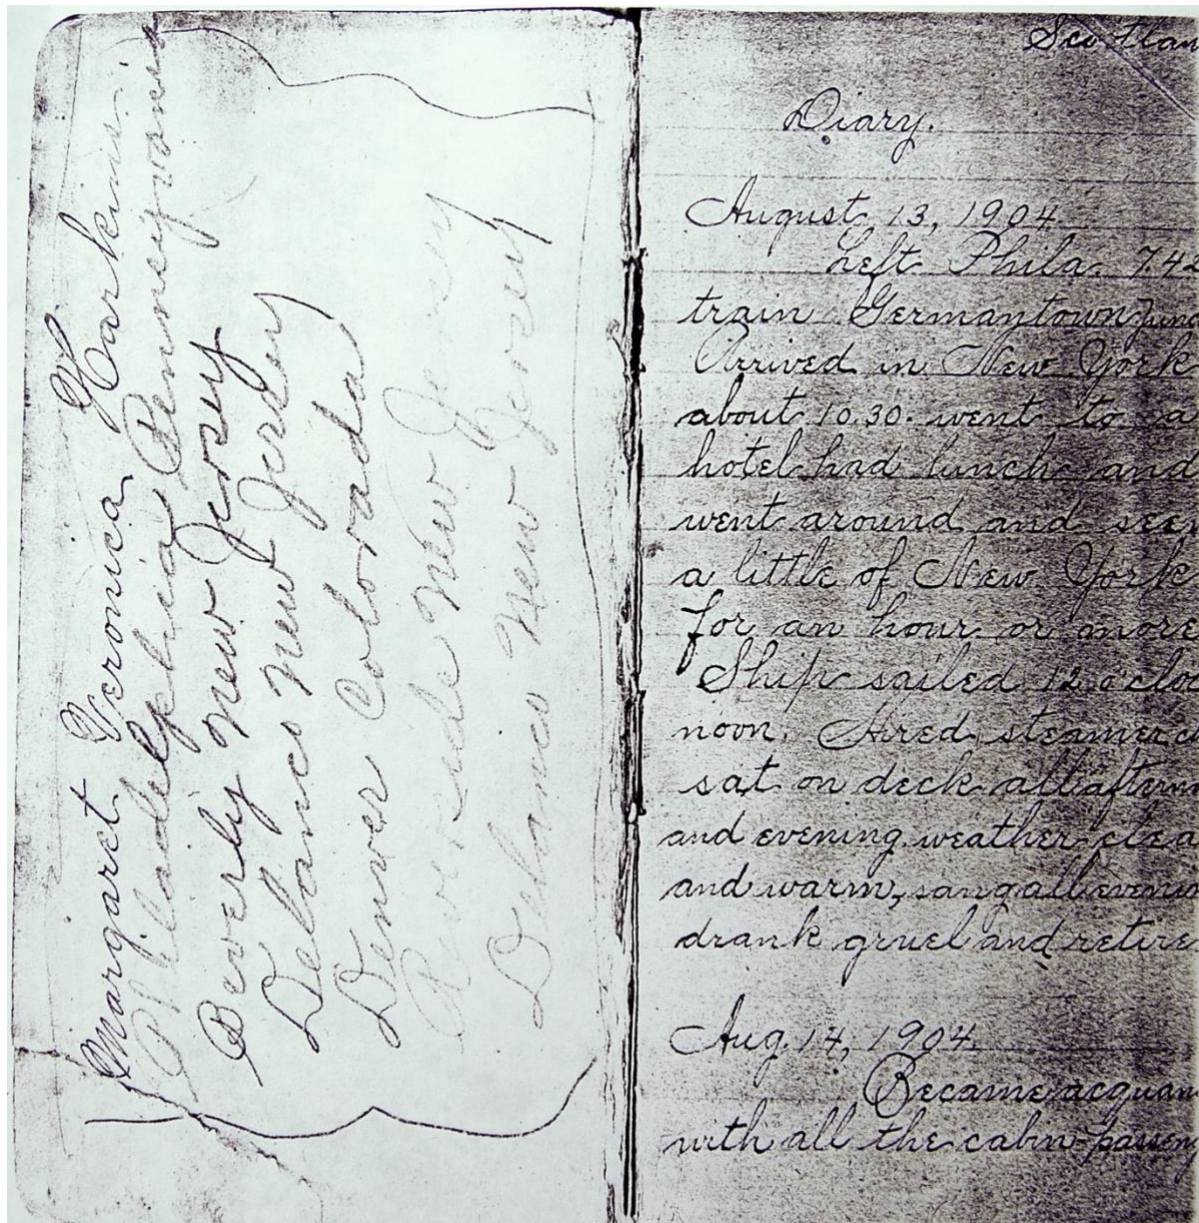 Margaret Veronica Harkins.
Philadelphia Pennsylvania
Beverly New Jersey
Delanco New Jersey
Denver Colorado
Riverside New Jersey
Delanco New Jersey
Scotlan
Diary.
August 13, 1904
Left Phila. 7.42
train Germantown Junc
Arrived in New York
about 10.30. went to a
hotel had lunch and
went around and seen
a little of New York
for an hour or more
Ship sailed 12 o'cloc
noon. Hired steamer c
sat on deck all aftern
and evening weather clea
and warm, sang all evenin
drank gruel and retire
Aug. 14, 1904.
Became acquan
with all the cabin passen